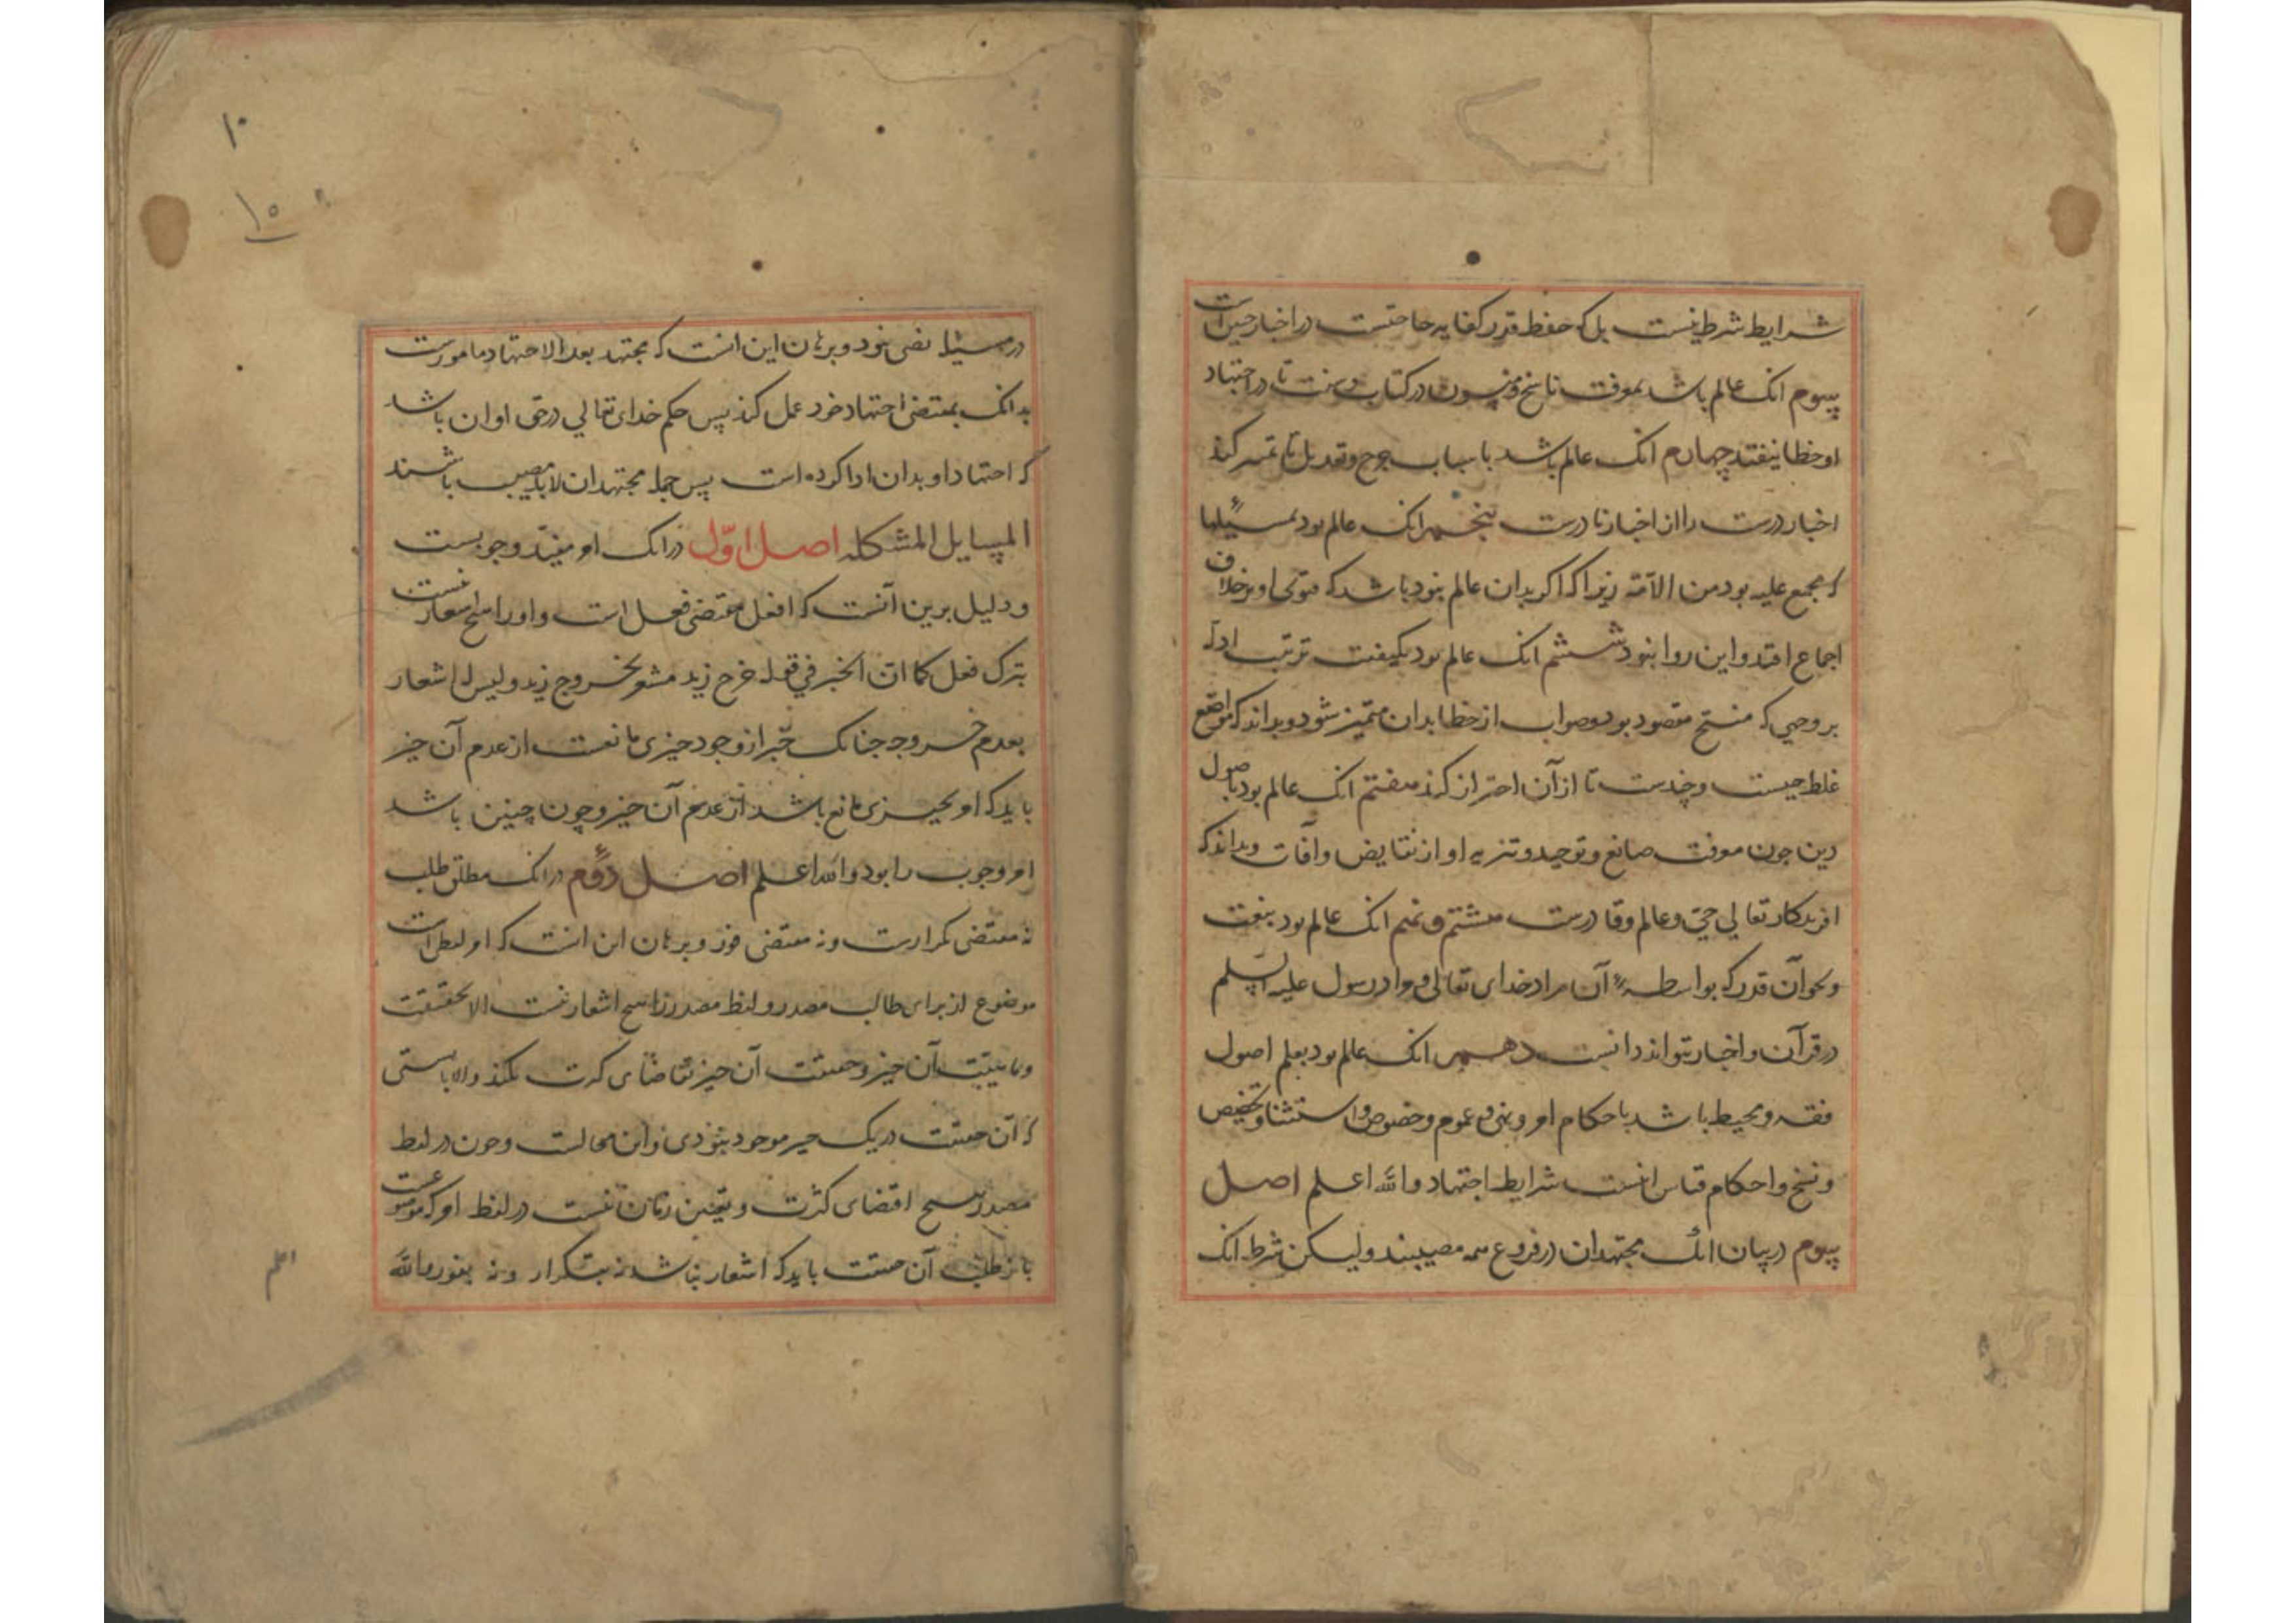 شرایط شرط نیست بل که حفظ قدر کفایه حاجتست در اخبار حین است
سوم انک عالم باشد بمعرفت ناسخ و منسوخ در کتاب و سنت تا در اجتهاد
او خطا نیفتد چهارم انک عالم باشد باسباب جرح و تعدیل تا تمییز کند
اخبار درست را از اخبار نادرست پنجم انک عالم بود بمسئیلها
که مجمع علیه بود من الامّة زیرا که اگر بدان عالم نبود باشد که فتوی او بر خلاف
اجماع افتد و این روا نبود ششم انک عالم بود بکیفیت ترتیب ادله
بر وجهی که منتج مقصود بود و صواب از خطا بدان متمیّز شود و بداند که مواضع
غلط چیست و چندست تا از آن احتراز کند هفتم انک عالم بود باصول
دین چون معرفت صانع و توحید و تنزیه او از نقایض و آفات و بداند که
افریدکار تعالی حیّ و عالم و قادرست هشتم و نهم انک عالم بود بلغت
و نحو آن قدر که بواسطهٔ آن مراد خدای تعالی و مراد رسول علیه السلم
در قرآن و اخبار بتواند دانست دهم انک عالم بود بعلم اصول
فقه و محیط باشد باحکام امر و نهی و عموم و خصوص و استثنا و تخصیص
و نسخ و احکام قیاس اینست شرایط اجتهاد والله اعلم اصل
سوم در بیان انک مجتهدان در فروع همه مصیبند ولیکن شرط انک
۱۰
۱۰
در مسئیله نصی نبود و برهان این انست که مجتهد بعد الاجتهاد مامورست
بدانک بمقتضی اجتهاد خود عمل کند پس حکم خدای تعالی در حق او ان باشد
که اجتهاد او بدان ادا کرده است پس جمله مجتهدان لابد مصیب باشند
المسایل المشکله اصل اوّل در انک امر مفید وجوبست
و دلیل برین آنست که افعل مقتضی فعل است و او را هیچ اشعار نیست
بترک فعل کما انّ الخبر في قوله خرج زید مشعر بخروج زید و لیس له اشعار
بعدم خروجه چنانک خبر از وجود چیزی مانعست از عدم آن چیز
باید که امر بچیزی مانع باشد از عدم آن چیز و چون چنین باشد
امر وجوب را بود والله اعلم اصل دوم در انک مطلق طلب
نه مقتضی تکرارست و نه مقتضی فور و برهان این انست که امر لفظی است
موضوع از برای طالب مصدر و لفظ مصدر را هیچ اشعار نیست الا بحقیقت
و ماهیّت آن چیز و حقیقت آن چیز تقاضای کثرت نکند و الا بایستی
که آن حقیقت در یک چیز موجود نبودی و این محالست و چون در لفظ
مصدر هیچ اقتضای کثرت و تعیین زمان نیست در لفظ امر که موضوعست
باز طلب آن حقیقت باید که اشعار نباشد نه بتکرار و نه بفور والله
اعلم